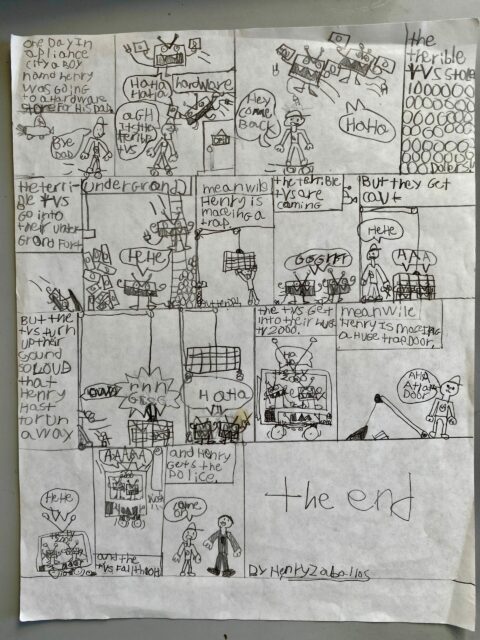 one Day In
apliance
city a Boy
namd Henry
was going
to a hardware
store For HisDad
Bye
DaD
HaHa
HaHa
hardware
aGH
its the
terribl
tvs
Hey
come
Back
HaHa
the
trrible
tvs store
10000000
Dollers
the terri-
ble tvs
go into
their under
Ground Fort
underground
HeHe
meanwile
Henry is
maceing a
trap
the terrible
tvs are
coming
GGGrrr
But they Get
caut
HeHe
AAA
But the
tvs turn
up their
sound
so LOUD
that
Henry
Hast
to run
away
rnn
HaHa
the tvs Get
into their
tv 2000.
meanwile
Henry is maceing
a Huse trap Door.
AHA
A trap
Door
HeHe
AAAAA
and the
tvs Fall
and Henry
Gets the
police.
come
on
the end
By Henry Zaballos